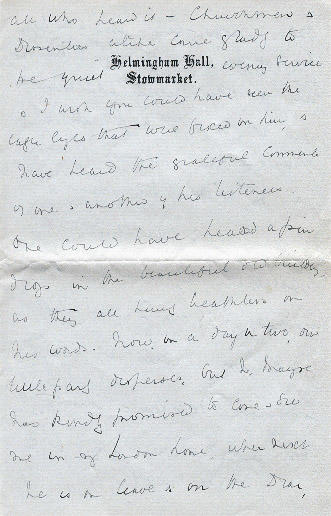 all who heard it - Churchmen &
Dissenters alike came gladly to
the quiet Helmingham Hall, evening service
Stowmarket.
& I wish you could have seen the
eager eyes that were fixed on him, &
have heard the grateful comments
of one & another of his listeners.
One could have heard a pin
drop in the beautiful old building
as they all hung breathless on
his words. Now, in a day or two, our
little party disperses, but
has kindly promised to come & see
me in my London home, when next
he is on leave & on the